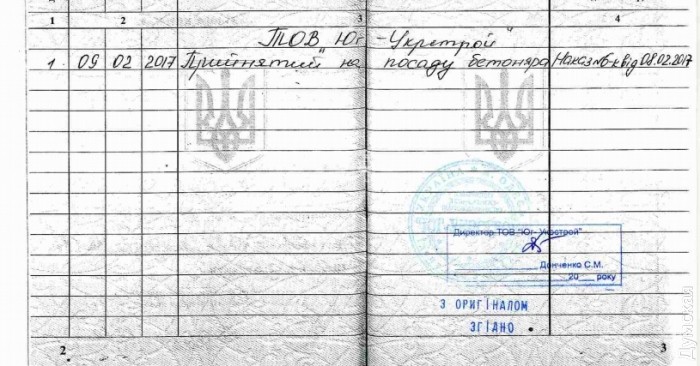 1 2 3 4
ТОВ "Юг-Укрстрой"
1. 09 02 2017 Прийнятий на посаду бетоняра Наказ №6-к від 08.02.2017
УКРАЇНА
Директор ТОВ "Юг- Укрстрой"
Донченко С.М.
20 року
З ОРИГІНАЛОМ
ЗГІДНО
2 3
Думская